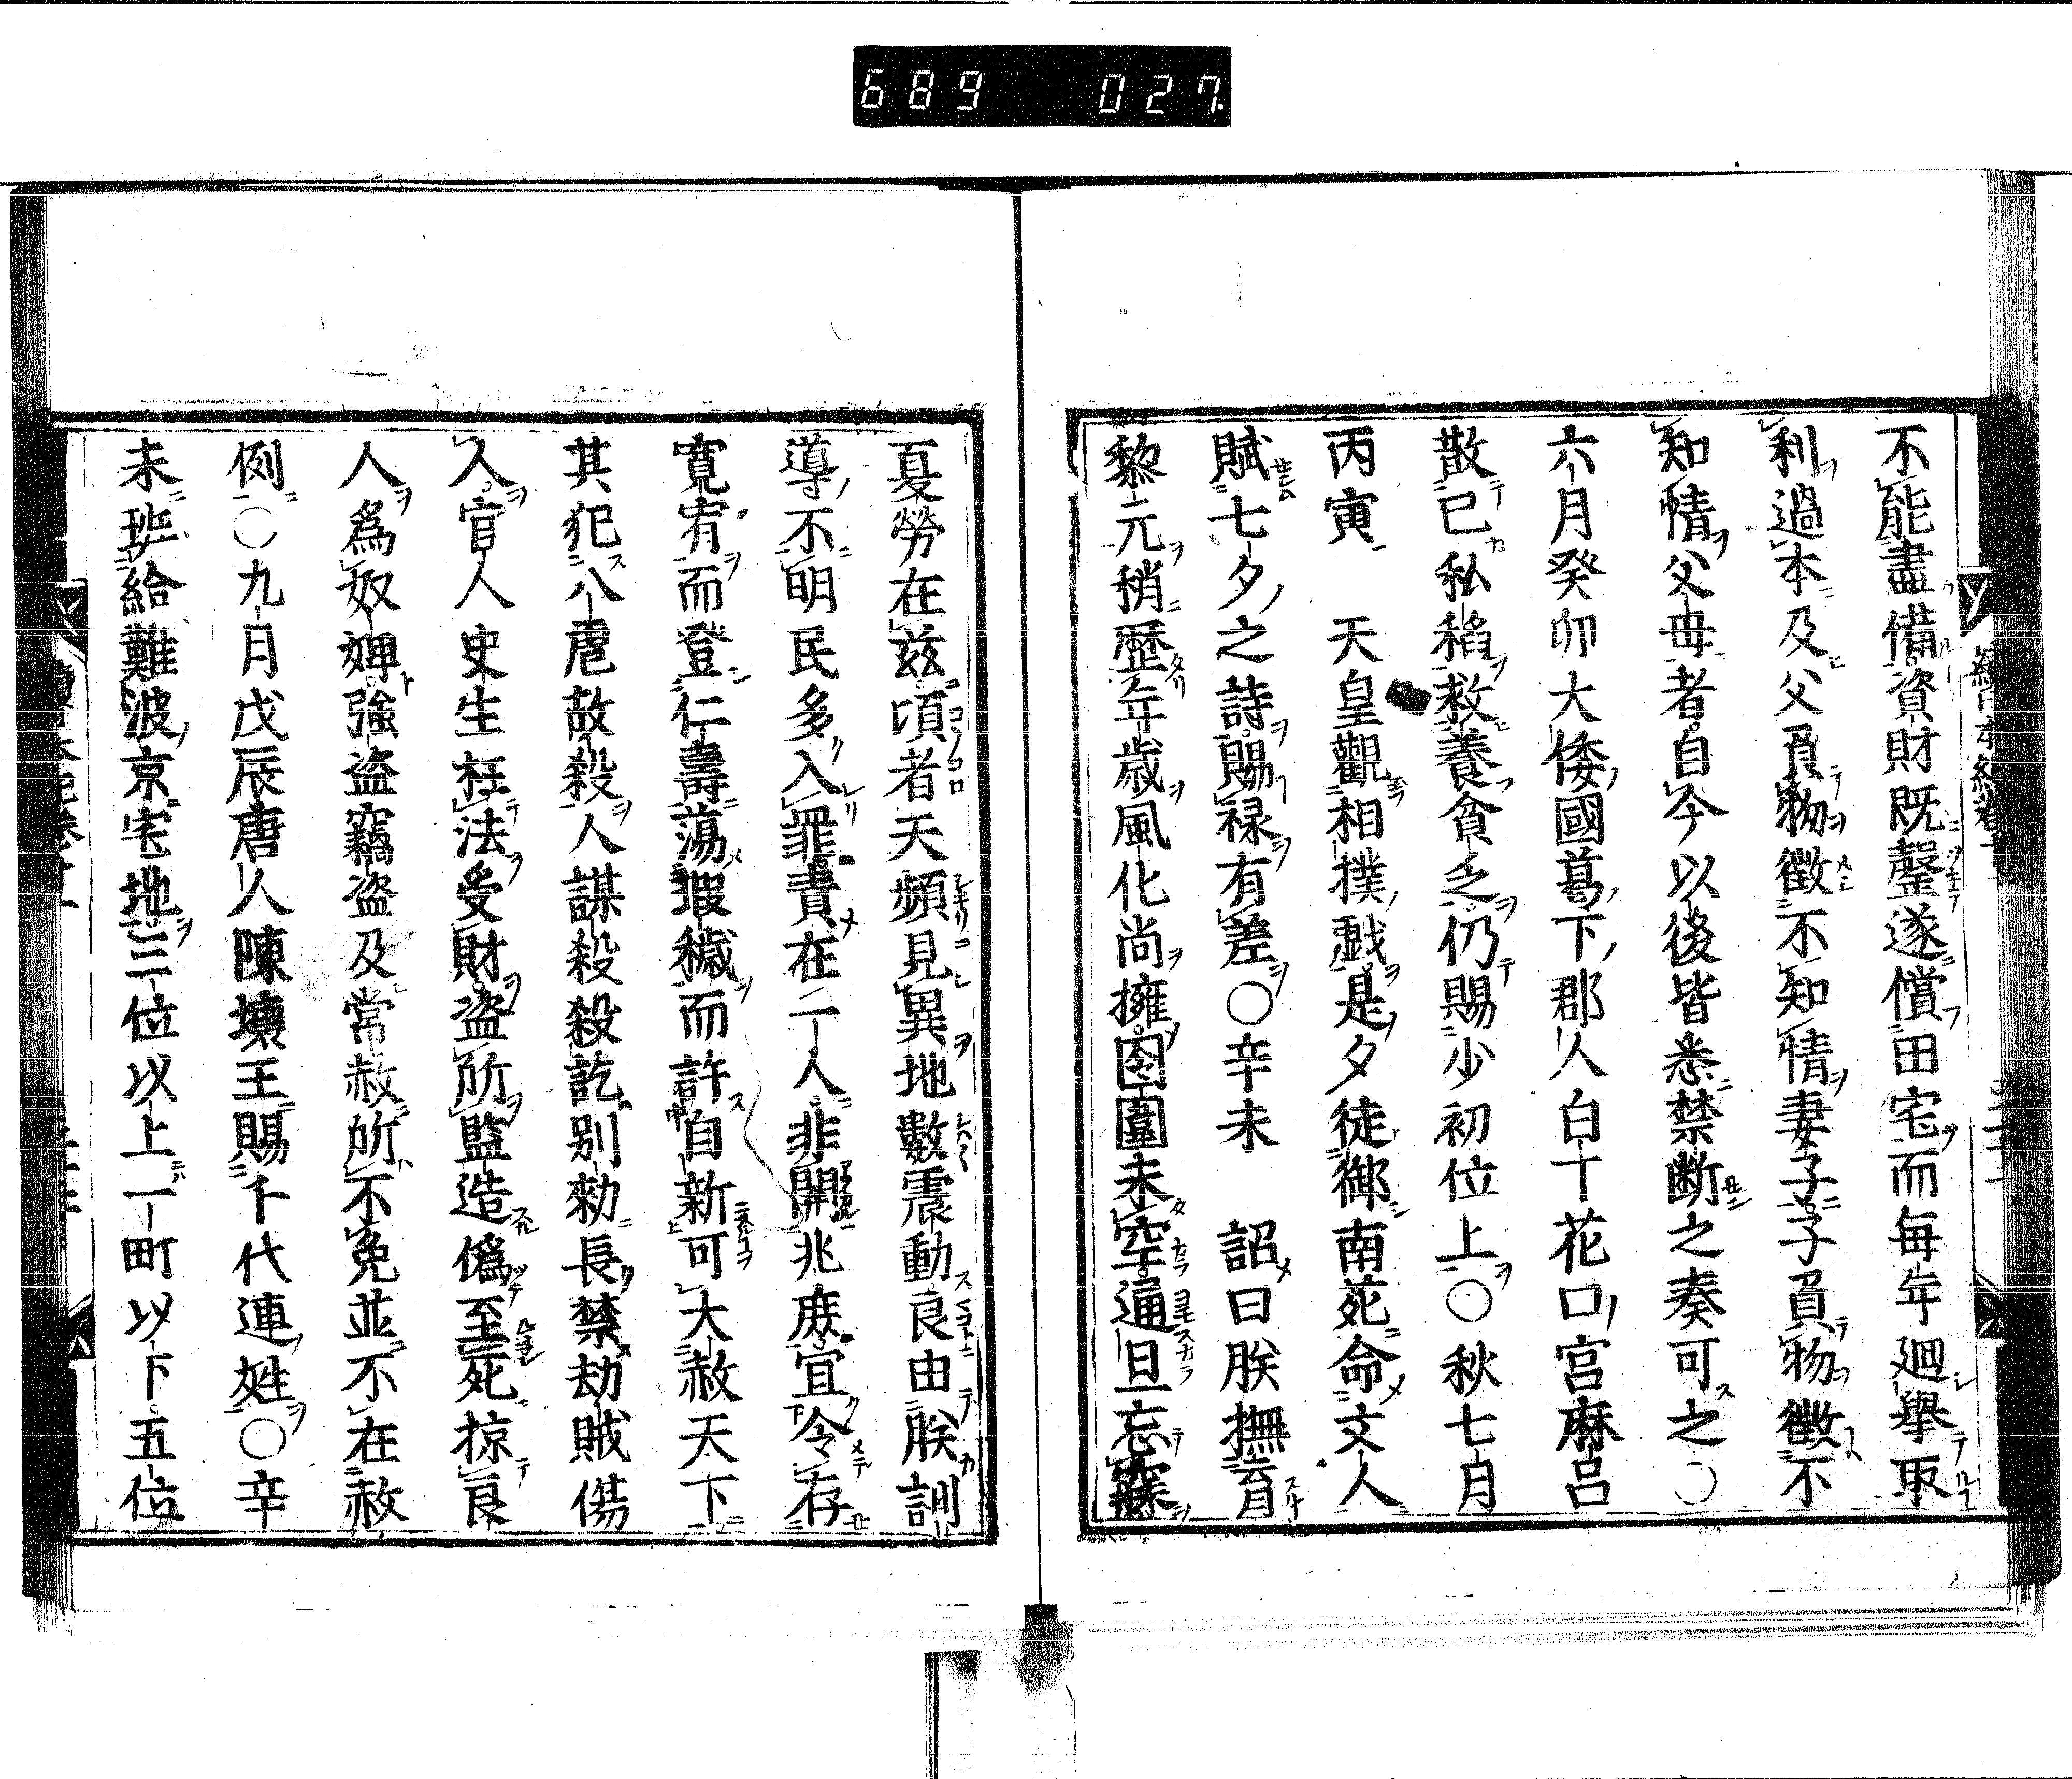 689 027.
不能盡備資財既罄遂償田宅而毎年廻擧取
利過本及父負物徵不知情妻子子負物徵不
知情父母者自今以後皆悉禁斷之奏可之○
六月癸卯大倭國葛下郡人白丁花口宮麻呂
散已私稻救養貪乏仍賜少初位上○秋七月
丙寅 天皇觀相撲戯是夕徒御南苑命文人
賦七夕之詩賜禄有差○辛未 詔曰朕撫育
黎元稍歴年歳風化尚擁囹圄未空通旦忘寐
憂勞在茲頃者天頻見異地數震動良由朕訓
導不明民多入罪責在一人非關兆庶宜令存
寛宥而登仁壽蕩瑕穢而許自新可大赦天下
其犯八虐故殺人謀殺殺訖別勅長禁劫賊傷
人官人史生枉法受財盜所監造僞至死掠良
人爲奴婢強盜竊盜及常赦所不免並不在赦
例○九月戊辰唐人陳壞王賜千代連姓○辛
未班給難波京宅地三位以上一町以下五位